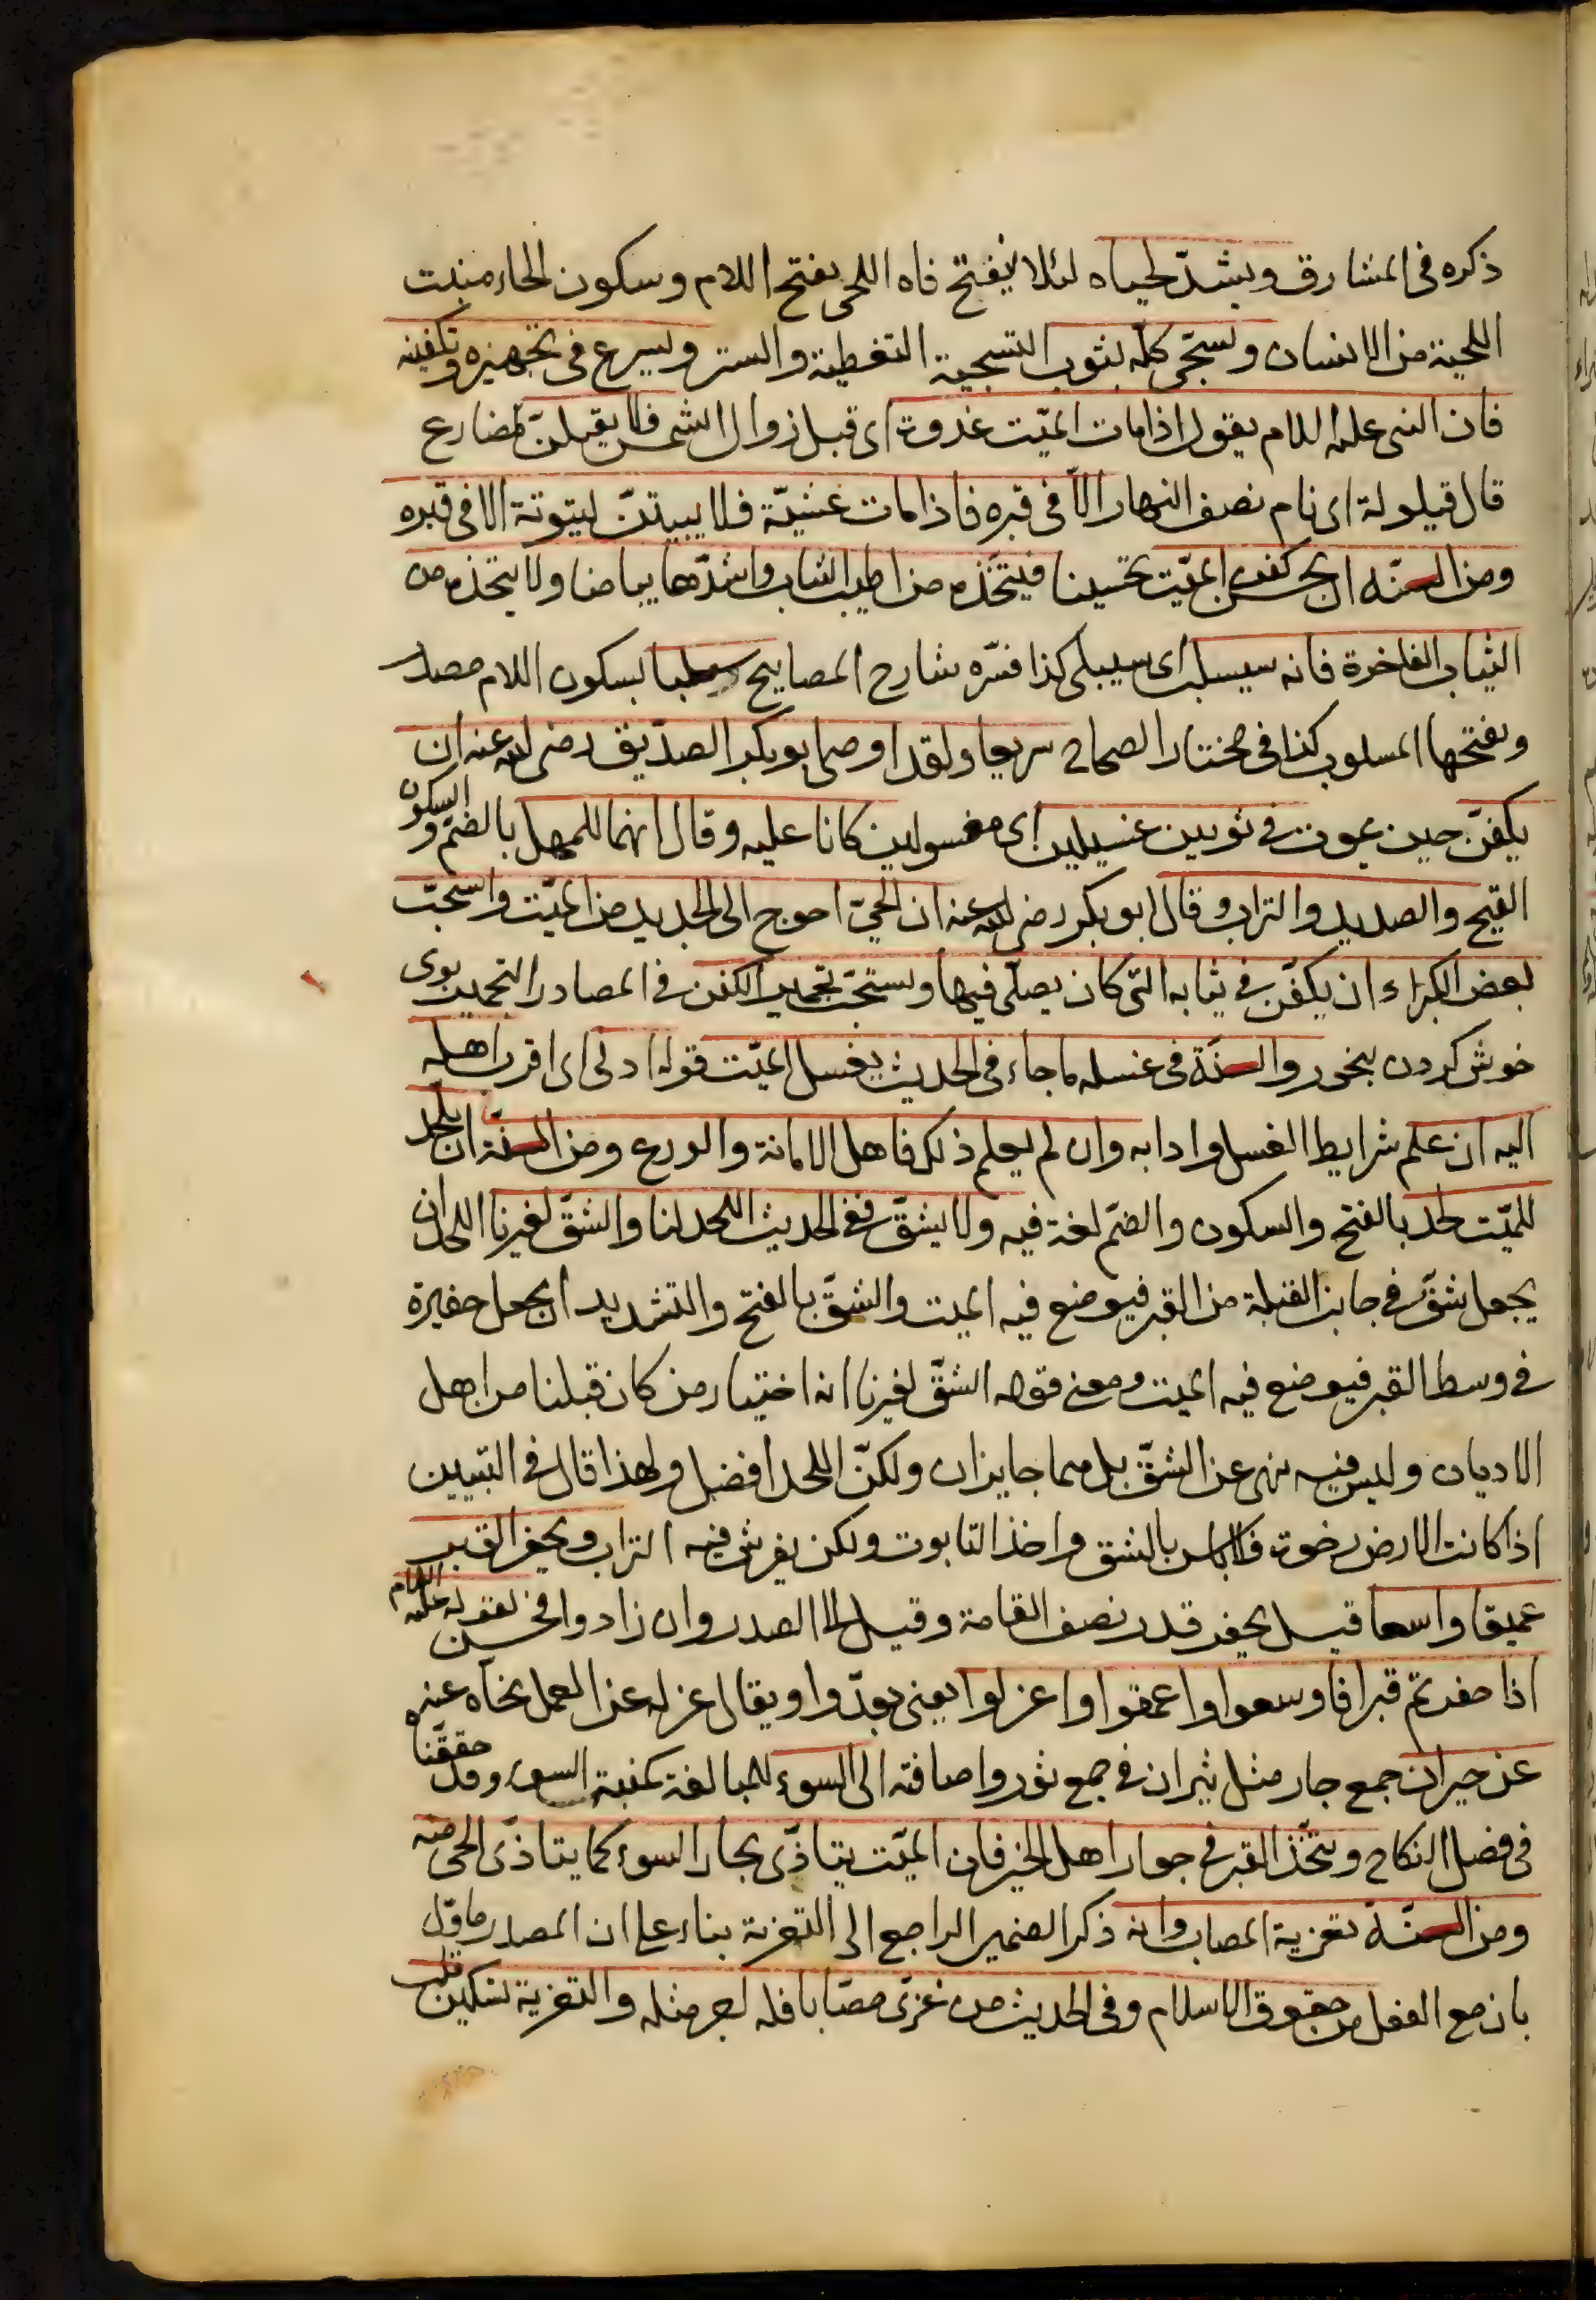 ذكره فى المشارق ويشدّ لحياه لئلا ينفتح فاه اللحى بفتح اللام وسكون الحاء منبت
اللحية من الانسان ويسجّى كلّه بثوب التسجية التغطية والستر ويسرع فى تجهيزه وتكفينه
فان النبى عليه السلام يقول اذا مات الميّت غدوة اى قبل زوال الشمس فلا يقيلنّ مضارع
قال قيلولة اى نام نصف النهار الّا فى قبره فاذا مات عشيّة فلا يبيتنّ بيتوتة الا فى قبره
ومن السنّه ان يحسن كفن الميّت تحسينا فيتّخذه من اطيب الثياب واشدّها بياضا ولا يتخذه من
الثياب الفاخرة فانه سيسلب اى سيبلى كذا فسّره شارح المصابيح سلبا بسكون اللام مصدر
وبفتحها المسلوب كذا فى مختار الصحاح سريعا ولقد اوصى ابو بكر الصدّيق رضى الله عنه ان
يكفّن حين يموت فى ثوبين غسيلين اى مغسولين كانا عليه وقال انهما للمهل بالضمّ والسكون
القيح والصديد والتراب وقال ابو بكر رضى الله عنه ان الحىّ احوج الى الجديد من الميّت واستحبّ
بعض الكبراء ان يكفّن فى ثيابه التى كان يصلّى فيها ويستحبّ تجمير الكفن فى المصادر التجمير بوى
خوش كردن ببخور والسنّة فى غسله ما جاء فى الحديث يغسل الميّت قوله ادنى اى اقرب اهله
اليه ان علم شرايط الغسل وادابه وان لم يعلم ذلك فاهل الامانة والورع ومن السنّة ان يلحد
للميّت لحد بالفتح والسكون والضمّ لغة فيه ولا يشقّ ففى الحديث اللحد لنا والشقّ لغيرنا اللحد ان
يجعل شقّ فى جانب القبلة من القبر فيوضع فيه الميت والشقّ بالفتح والتشديد ان يجعل حفيرة
فى وسط القبر فيوضع فيه الميت ومعنى قوله الشقّ لغيرنا انه اختيار من كان قبلنا من اهل
الاديان وليس فيه نهى عن الشقّ بل هما جايزان ولكنّ اللحد افضل ولهذا قال فى التبيين
اذا كانت الارض رخوة فلا باس بالشق واخذ التابوت ولكن يفرش فيه التراب ويحفر القبر
عميقا واسعا قيل يحفر قدر نصف القامة وقيل الى الصدر وان زادوا فحسن لقوله عليه السلام
اذا حفرتم قبرا فاوسعوا واعمقوا واعزلوا يعنى بعدّوا ويقال عزله عن العمل نحّاه عنه
عن جيران جمع جار مثل ثيران فى جمع ثور واضافته الى السوء للمبالغة كمنبة السوء وقد حققّنا
فى فصل النكاح ويتّخذ القبر فى جوار اهل الخير فان الميّت يتاذّى بجار السوء كما يتاذّى الحى منه
ومن السنّة تعزية المصاب وانه ذكر الضمير الراجع الى التعزية بناء على ان المصدر ماوّل
بان مع الفعل من حقوق الاسلام وفى الحديث من عزّى مصابا فله اجر مثله والتعزية تسكين قلب